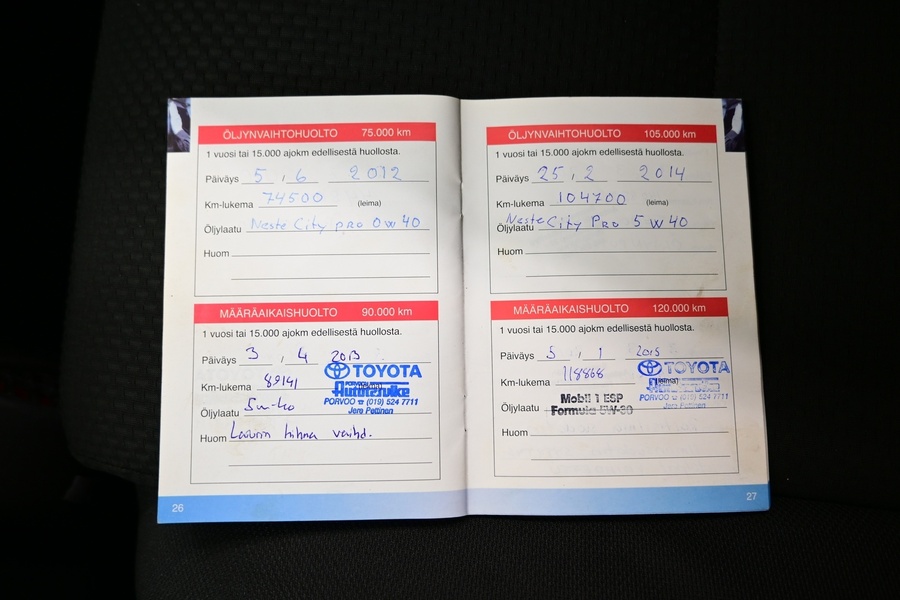 ÖLJYNVAIHTOHUOLTO 75.000 km
1 vuosi tai 15.000 ajokm edellisestä huollosta.
Päiväys 5 , 6 2012
Km-lukema 74500 (leima)
Öljylaatu Neste City pro 0w40
Huom
MÄÄRÄAIKAISHUOLTO 90.000 km
1 vuosi tai 15.000 ajokm edellisestä huollosta.
Päiväys 3 , 4 2013
TOYOTA
Km-lukema 89141
PORVOO ☎ (019) 524 7711
Öljylaatu 5w-40
Jero Pettinen
Huom Laturin hihna vaihd.
26
ÖLJYNVAIHTOHUOLTO 105.000 km
1 vuosi tai 15.000 ajokm edellisestä huollosta.
Päiväys 25 , 2 2014
Km-lukema 104700 (leima)
Öljylaatu Neste City Pro 5w40
Huom
MÄÄRÄAIKAISHUOLTO 120.000 km
1 vuosi tai 15.000 ajokm edellisestä huollosta.
Päiväys 5 , 1 2015
TOYOTA
Km-lukema 118868 (leima)
PORVOO ☎ (019) 524 7711
Öljylaatu Mobil 1 ESP
Formula 5W-30
Huom
27